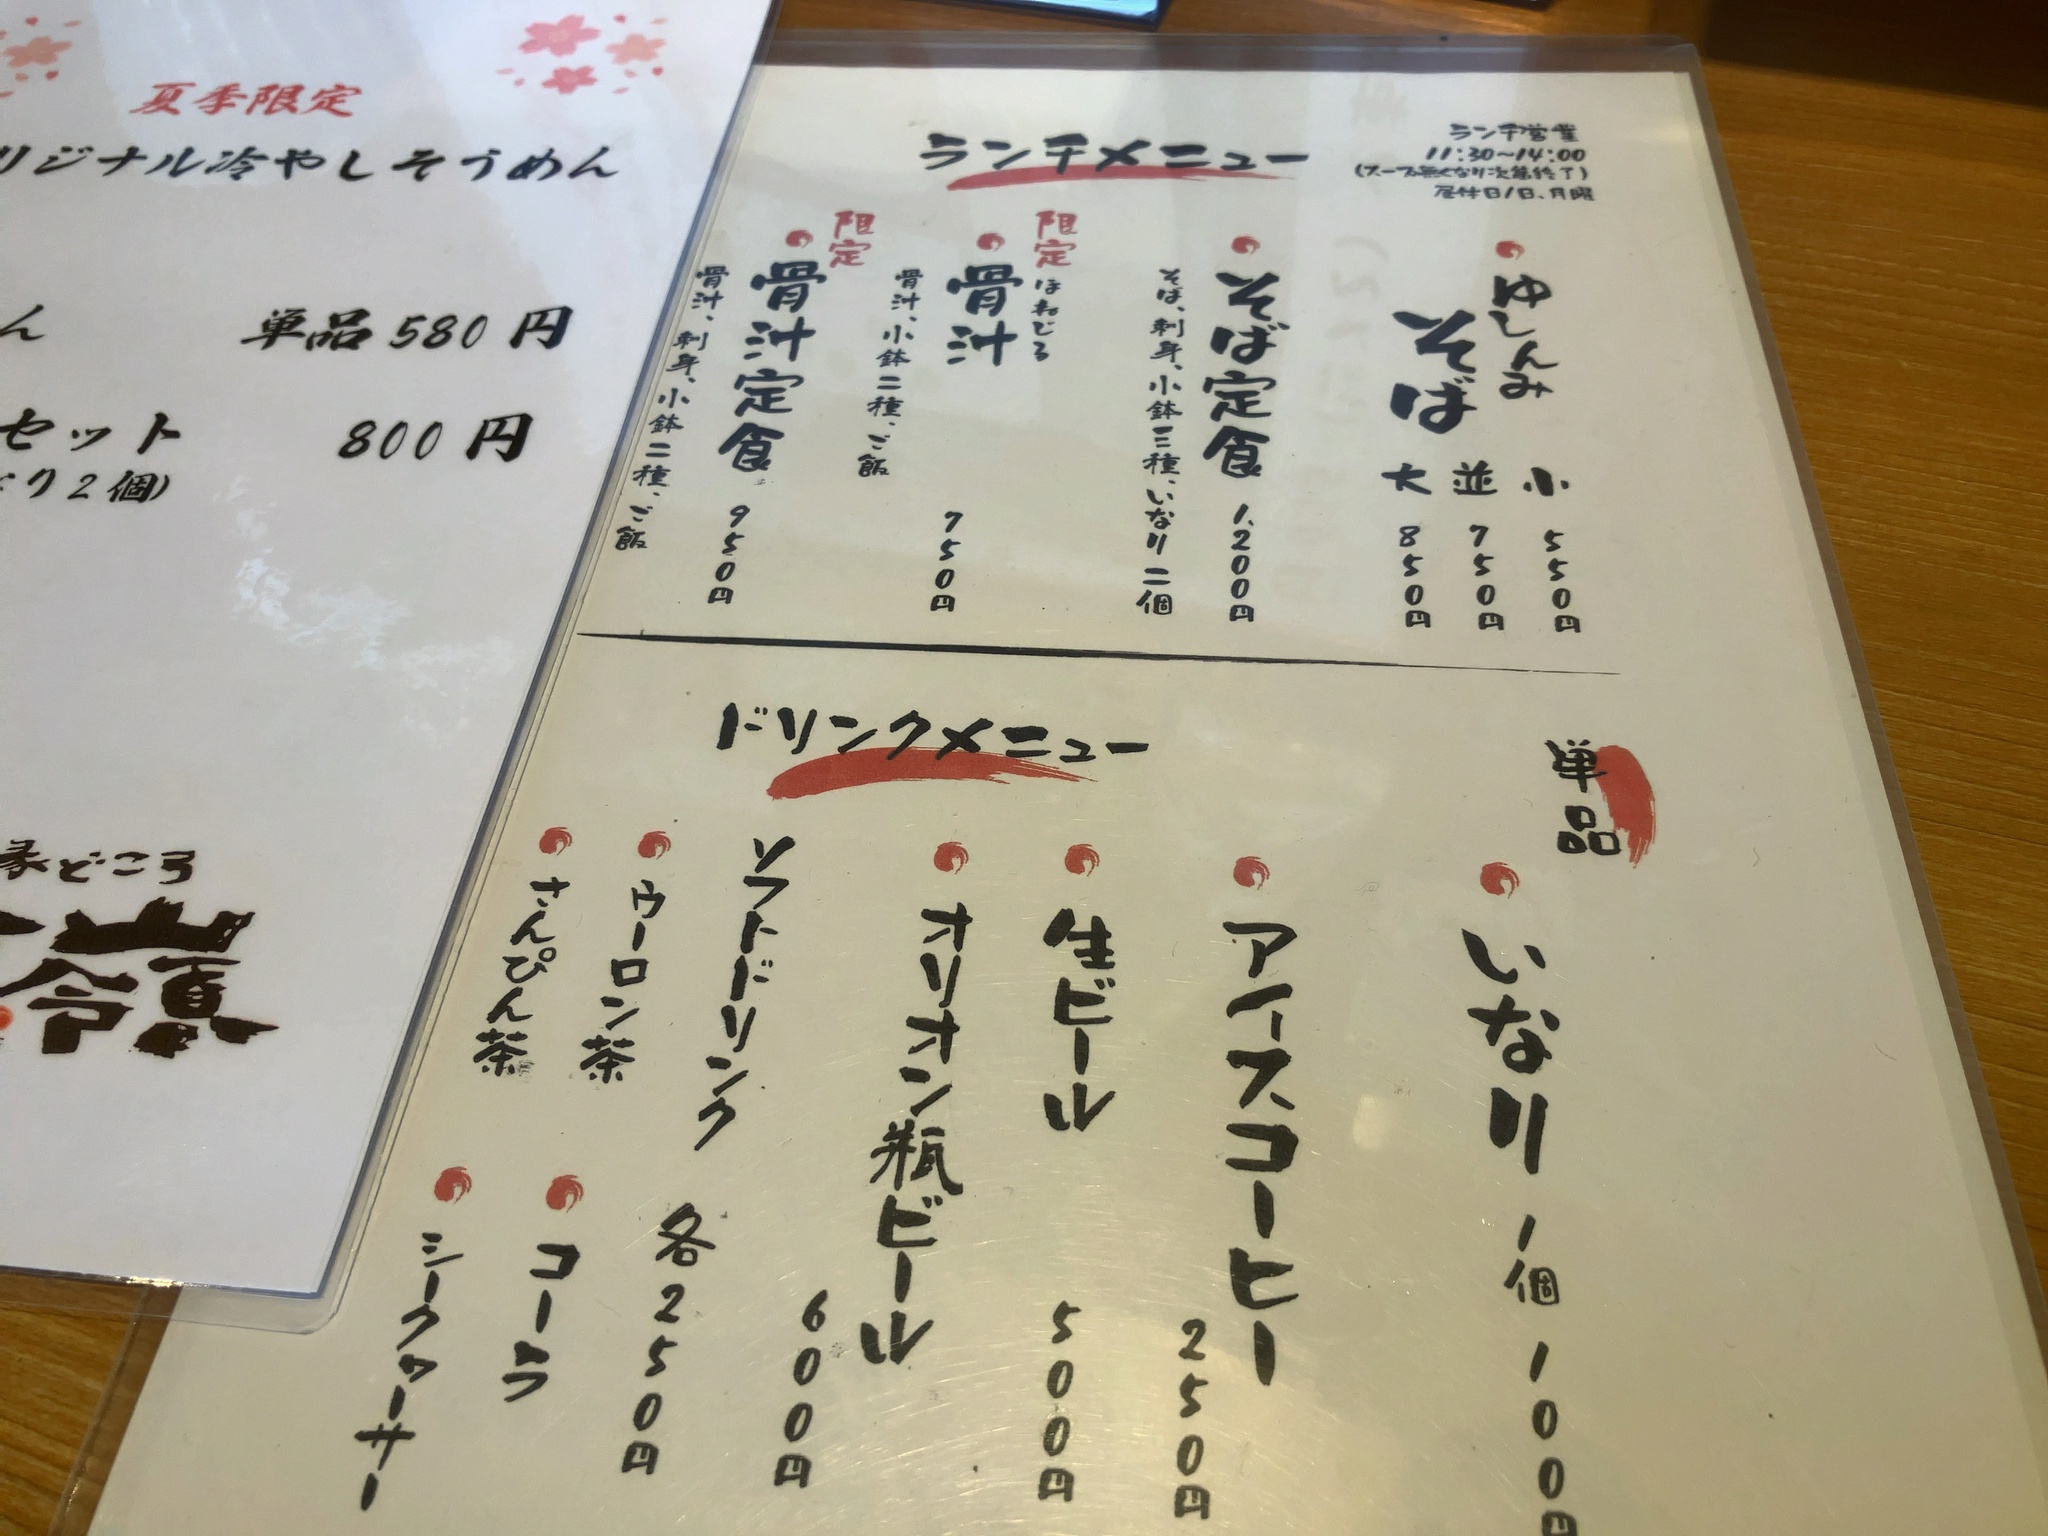 夏季限定
リジナル冷やしそうめん
ん 単品 580 円
セット 800 円
り2個)
どころ
ランチメニュー
ランチ営業
11:30~14:00
(スープ無くなり次第終了)
定休日/日、月曜
ゆしんみ
そば
小 550円
並 750円
大 850円
そば定食 1,200円
そば、刺身、小鉢三種、いなり二個
限定
ほねじる
骨汁 750円
骨汁、小鉢二種、ご飯
限定
骨汁定食 950円
骨汁、刺身、小鉢二種、ご飯
単品
いなり 1個 100円
ドリンクメニュー
アイスコーヒー 250円
生ビール 500円
オリオン瓶ビール 600円
ソフトドリンク 各250円
ウーロン茶
コーラ
さんぴん茶
シークヮーサー